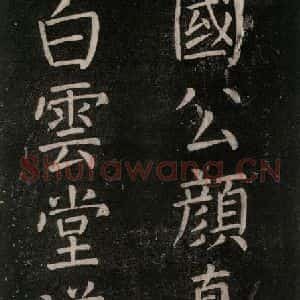 國公顔真
白雲堂
Shufawang.CN